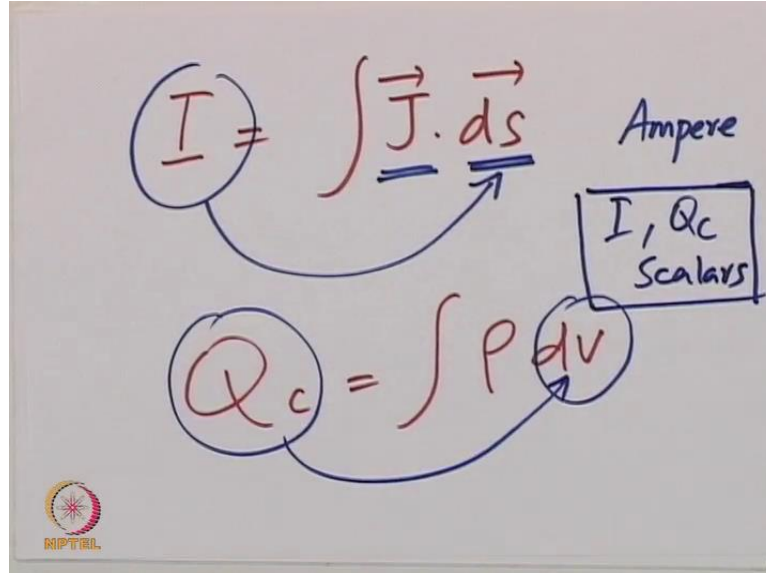 I = ∫ J⃗ . d⃗s
Ampere
I, Qc
Scalars
Qc = ∫ ρ dv
NPTEL